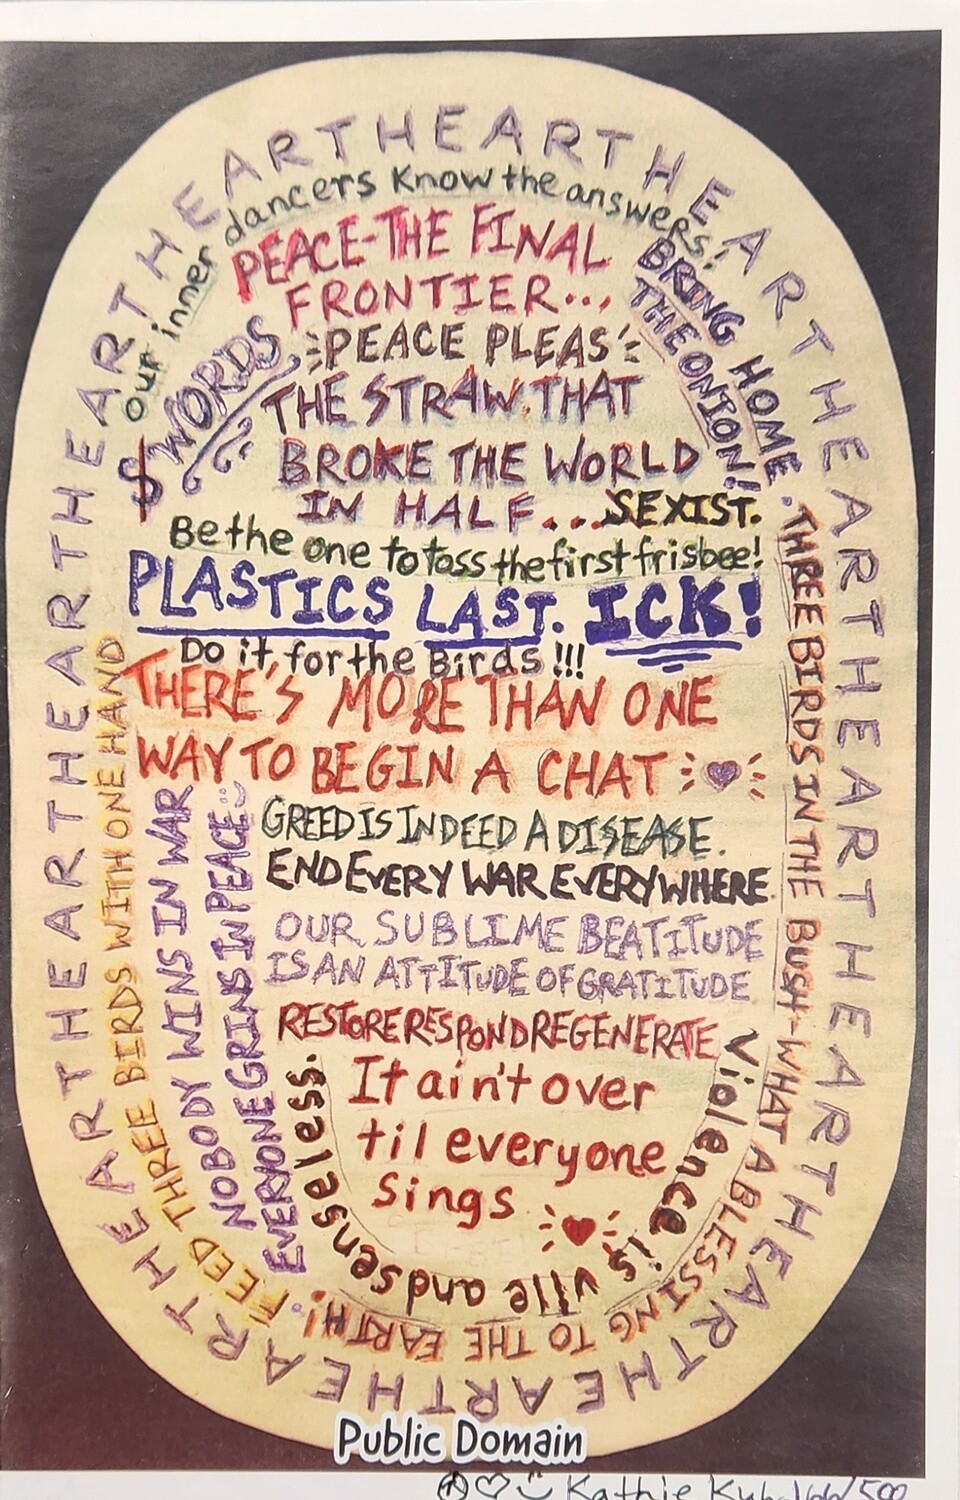 HEARTHEARTHEARTHEARTHEARTHEARTHEARTHEARTHEARTHEARTHEARTHEARTHEARTHEART
our inner dancers know the answers!
PEACE-THE FINAL
FRONTIER...
PEACE PLEAS
$WORDS
BRING HOME
THE ONION!
THE STRAW THAT
BROKE THE WORLD
IN HALF...SEXIST.
Be the one to toss the first frisbee!
PLASTICS LAST. ICK!
Do it, for the Birds!!!
THERE'S MORE THAN ONE
WAY TO BEGIN A CHAT
GREED IS INDEED A DISEASE.
END EVERY WAR EVERYWHERE.
OUR SUBLIME BEATITUDE
IS AN ATTITUDE OF GRATITUDE
RESTORE RESPOND REGENERATE
It ain't over
til everyone
sings
Violence is vile and senseless.
FEED THREE BIRDS WITH ONE HAND
NOBODY WINS IN WAR
EVERYONE GRINS IN PEACE
THREE BIRDS IN THE BUSH-WHAT A BLESSING TO THE EARTH!
Public Domain
Kathie